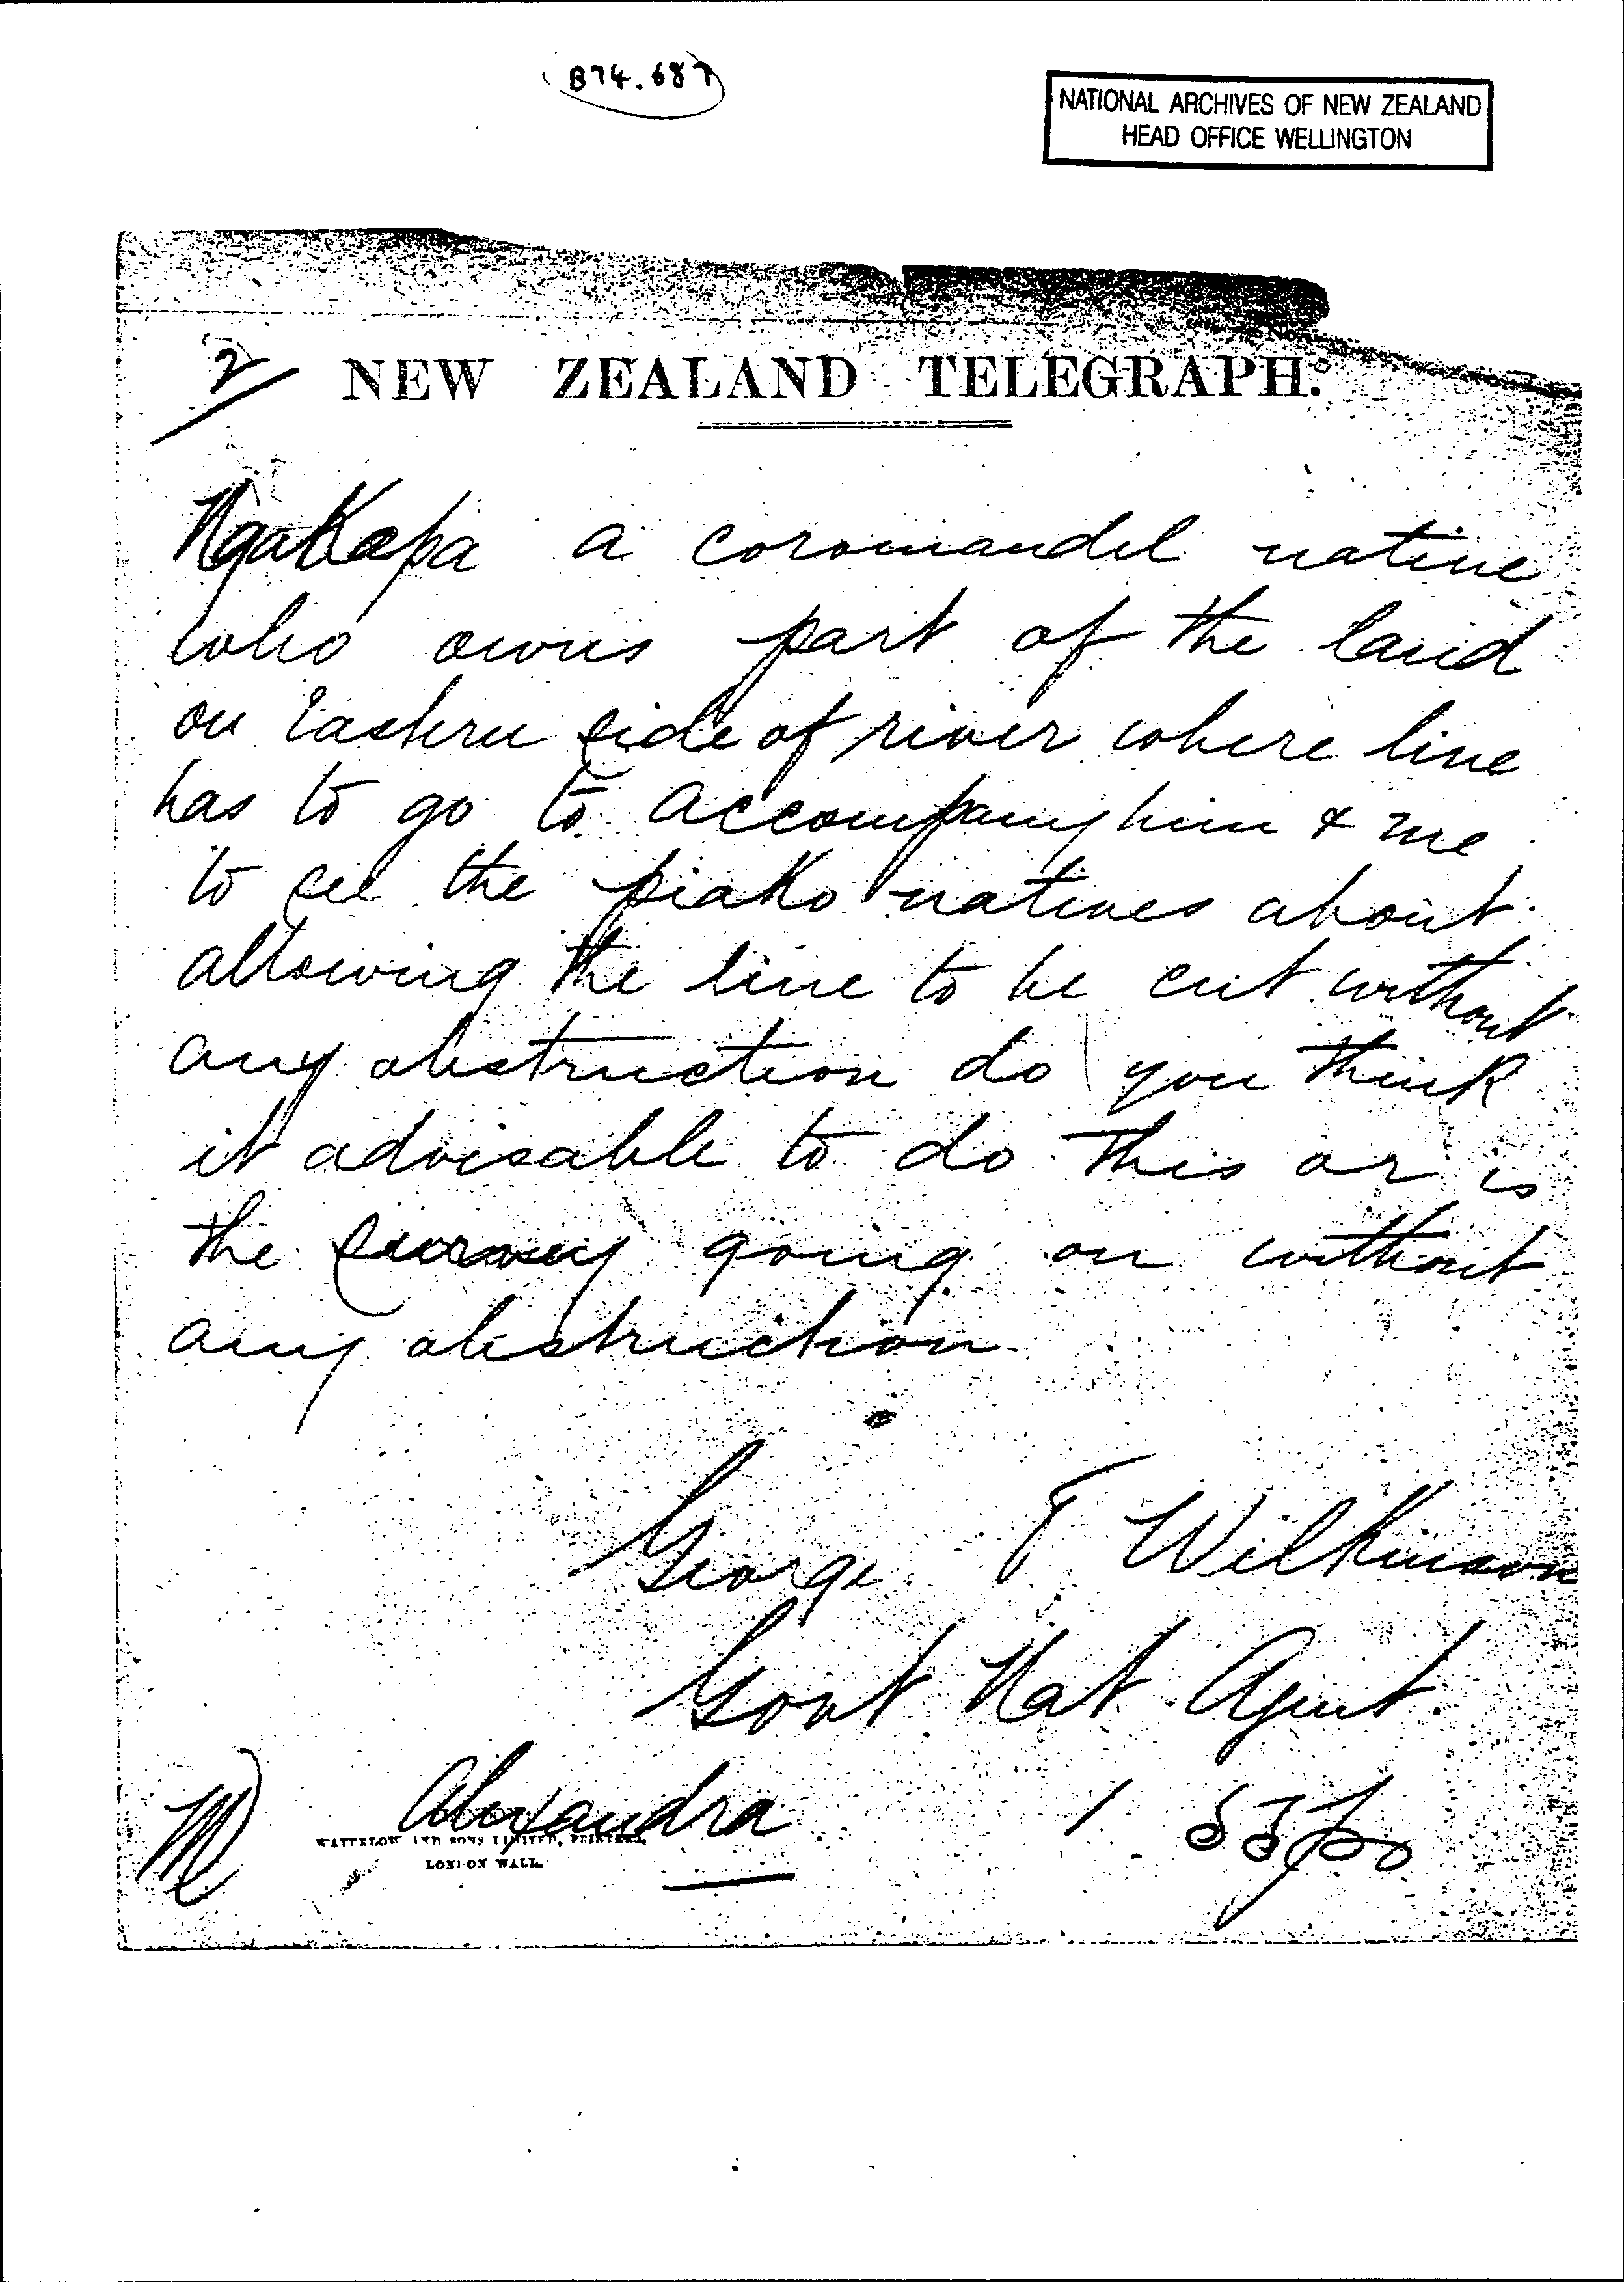 B74.687
NATIONAL ARCHIVES OF NEW ZEALAND
HEAD OFFICE WELLINGTON
2
NEW ZEALAND TELEGRAPH.
Ngakapa a coromandel native
who owns part of the land
on Eastern side of river where line
has to go to accompany him & me
to see the piako natives about
allowing the line to be cut without
any obstruction do you think
it advisable to do this or is
the survey going on without
any obstruction
George T Wilkinson
Govt Nat Agent
Alexandra
WATERLOW AND SONS LIMITED, PRINTERS,
LONDON WALL.